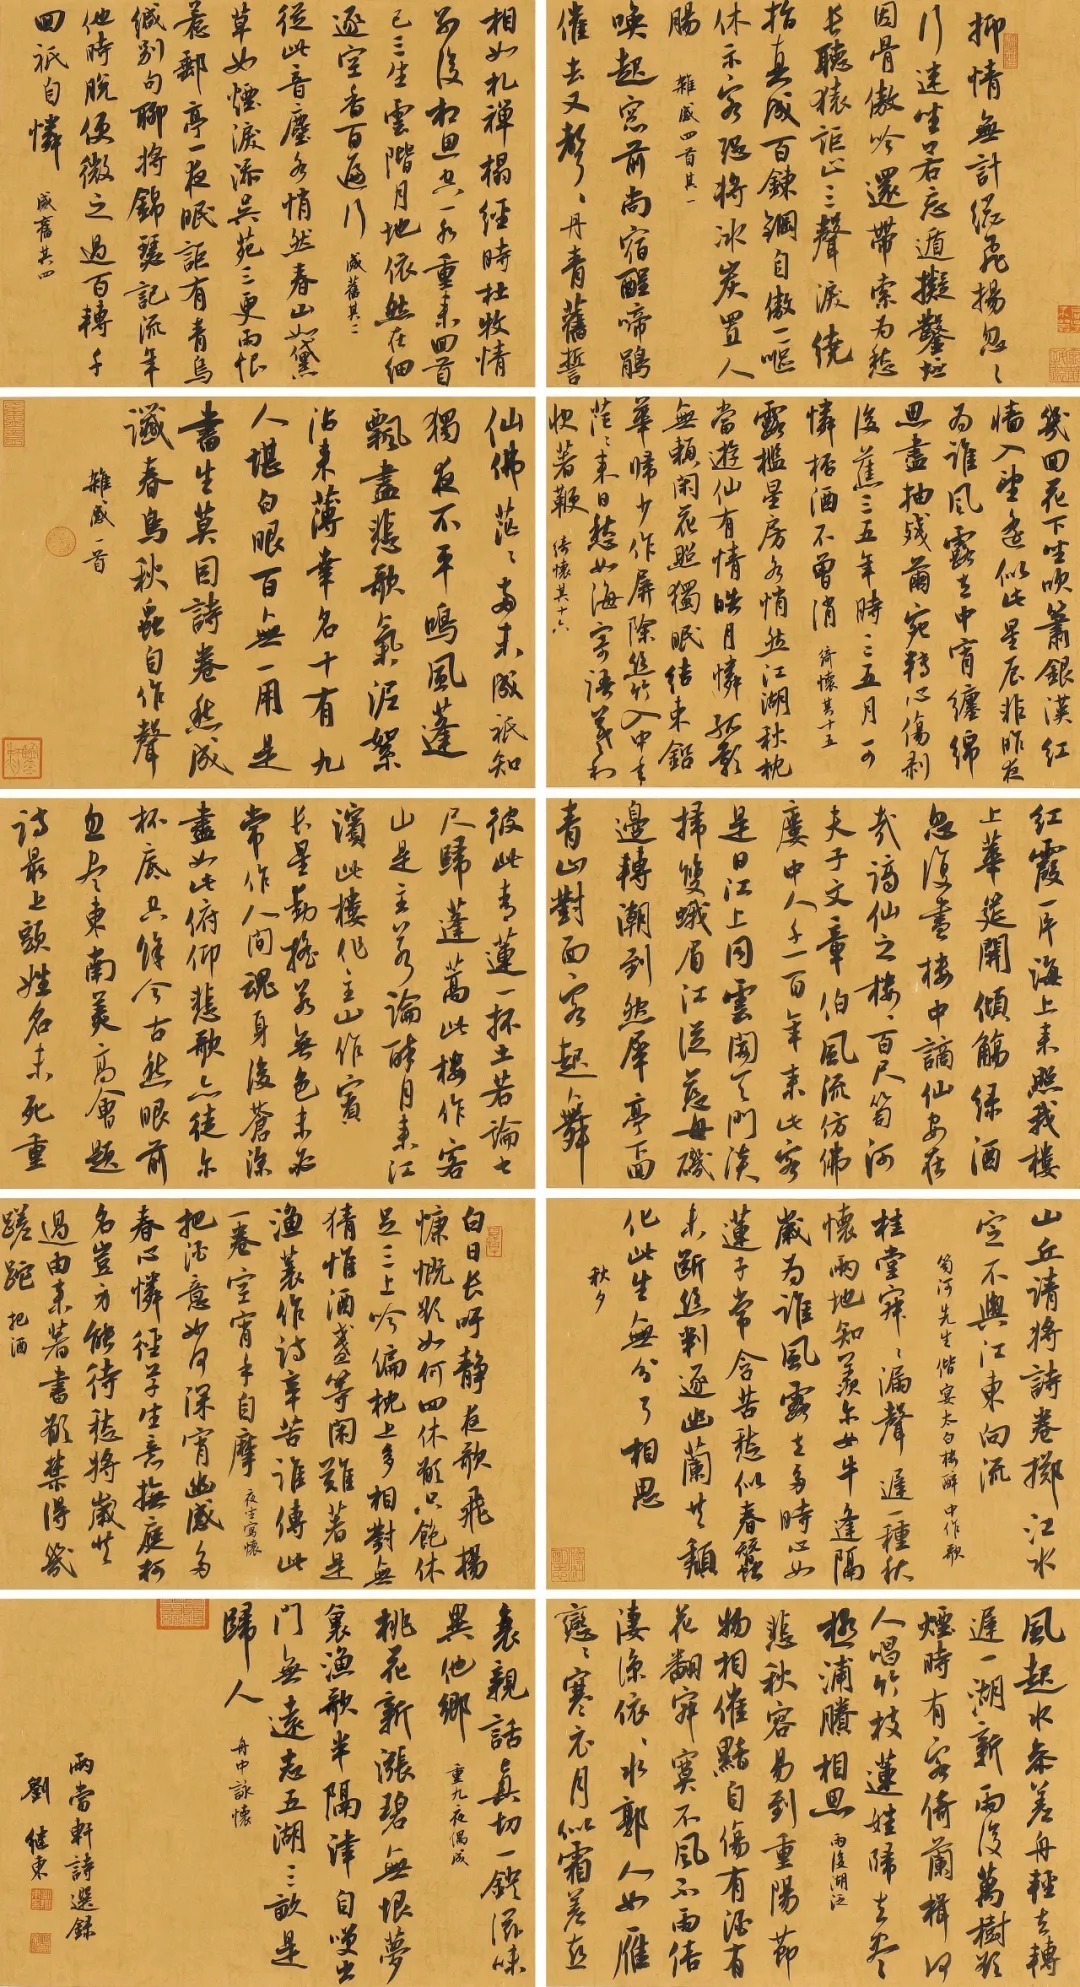 抑情無計總飛揚忽忽
行迷坐若忘遁擬鑿坯
因骨傲吟還帶索為愁
長聽猿詎止三聲淚繞
指真成百鍊鋼自傲一嘔
休示客恐將冰炭置人
腸 雜感四首其一
喚起窓前尚宿酲啼鵑
催去又聲〻丹青舊誓
相如札禅榻經時杜牧情
別後相思空一水重來回首
已三生雲階月地依然在細
逐空香百遍行 感舊其二
從此音塵各悄然春山如黛
草如煙淚添吳苑三更雨恨
惹郵亭一夜眠詎有青鳥
緘別句聊將錦瑟記流年
他時脫便微之過百轉千
回祇自憐 感舊其四
幾回花下坐吹簫銀漢紅
墻入望遙似此星辰非昨夜
為誰風露立中宵纏綿
思盡抽殘繭宛轉心傷剝
後蕉三五年時三五月可
憐杯酒不曾消 綺懷其十五
露檻星房各悄然江湖秋枕
當遊仙有情皓月憐孤影
無賴閑花照獨眠結束鉛
華歸少作屏除絲竹入中年
茫〻來日愁如海寄語羲和
快著鞭 綺懷其十六
仙佛茫〻兩未成祇知
獨夜不平鳴風蓬
飄盡悲歌氣泥絮
沾來薄幸名十有九
人堪白眼百無一用是
書生莫因詩卷愁成
讖春鳥秋蟲自作聲
雜感一首
紅霞一片海上來照我樓
上華筵開傾觴綠酒
忽復盡樓中謫仙安在
哉謫仙之樓〻百尺笥河
夫子文章伯風流仿佛
樓中人千一百年來此客
是日江上同雲開天門淡
掃雙蛾眉江從慈母磯
邊轉潮到然犀亭下回
青山對面客起舞
彼此青蓮一抔土若論七
尺歸蓬蒿此樓作客
山是主若論醉月來江
濱此樓作主山作賓
長星動搖若無色未必
常作人間魂身後蒼涼
盡如此俯仰悲歌亦徒尔
杯底只餘今古愁眼前
忽盡東南美高會題
詩最上頭姓名未死重
山丘請將詩卷擲江水
定不與江東向流
笥河先生偕宴太白樓醉中作歌
桂堂寂〻漏聲遲一種秋
懷兩地知羨尔女牛逢隔
歲為誰風露立多時心如
蓮子常含苦愁似春蠶
未斷絲判逐幽蘭共頹
化此生無分了相思
秋夕
白日長吁靜夜歌飛揚
慷慨欲如何四休欲只飽休
足三上吟偏枕上多相對無
猜惟酒盞等閑難著是
漁蓑作詩辛苦誰傳此
一卷空宵手自摩 夜坐寫懷
把酒意如何深宵幽感多
春心憐徑草生意撫庭柯
名豈方能待愁將歲共
過由來著書願禁得幾
蹉跎 把酒
風起水參差舟輕去轉
遲一湖新雨後萬樹欲
煙時有客倚蘭楫何
人唱竹枝蓮娃歸去盡
極浦賸相思 雨後湖泛
悲秋容易到重陽節
物相催黯自傷有酒有
花翻寂寞不風不雨倍
淒涼依〻水郭人如雁
戀〻寒衣月似霜差喜
衰親話真切一鐙滋味
異他鄉 重九夜偶成
桃花新漲碧無垠夢
裏漁歌半隔津自嘆出
門無遠志五湖三畝是
歸人 舟中詠懷
兩當軒詩選錄
劉繼東